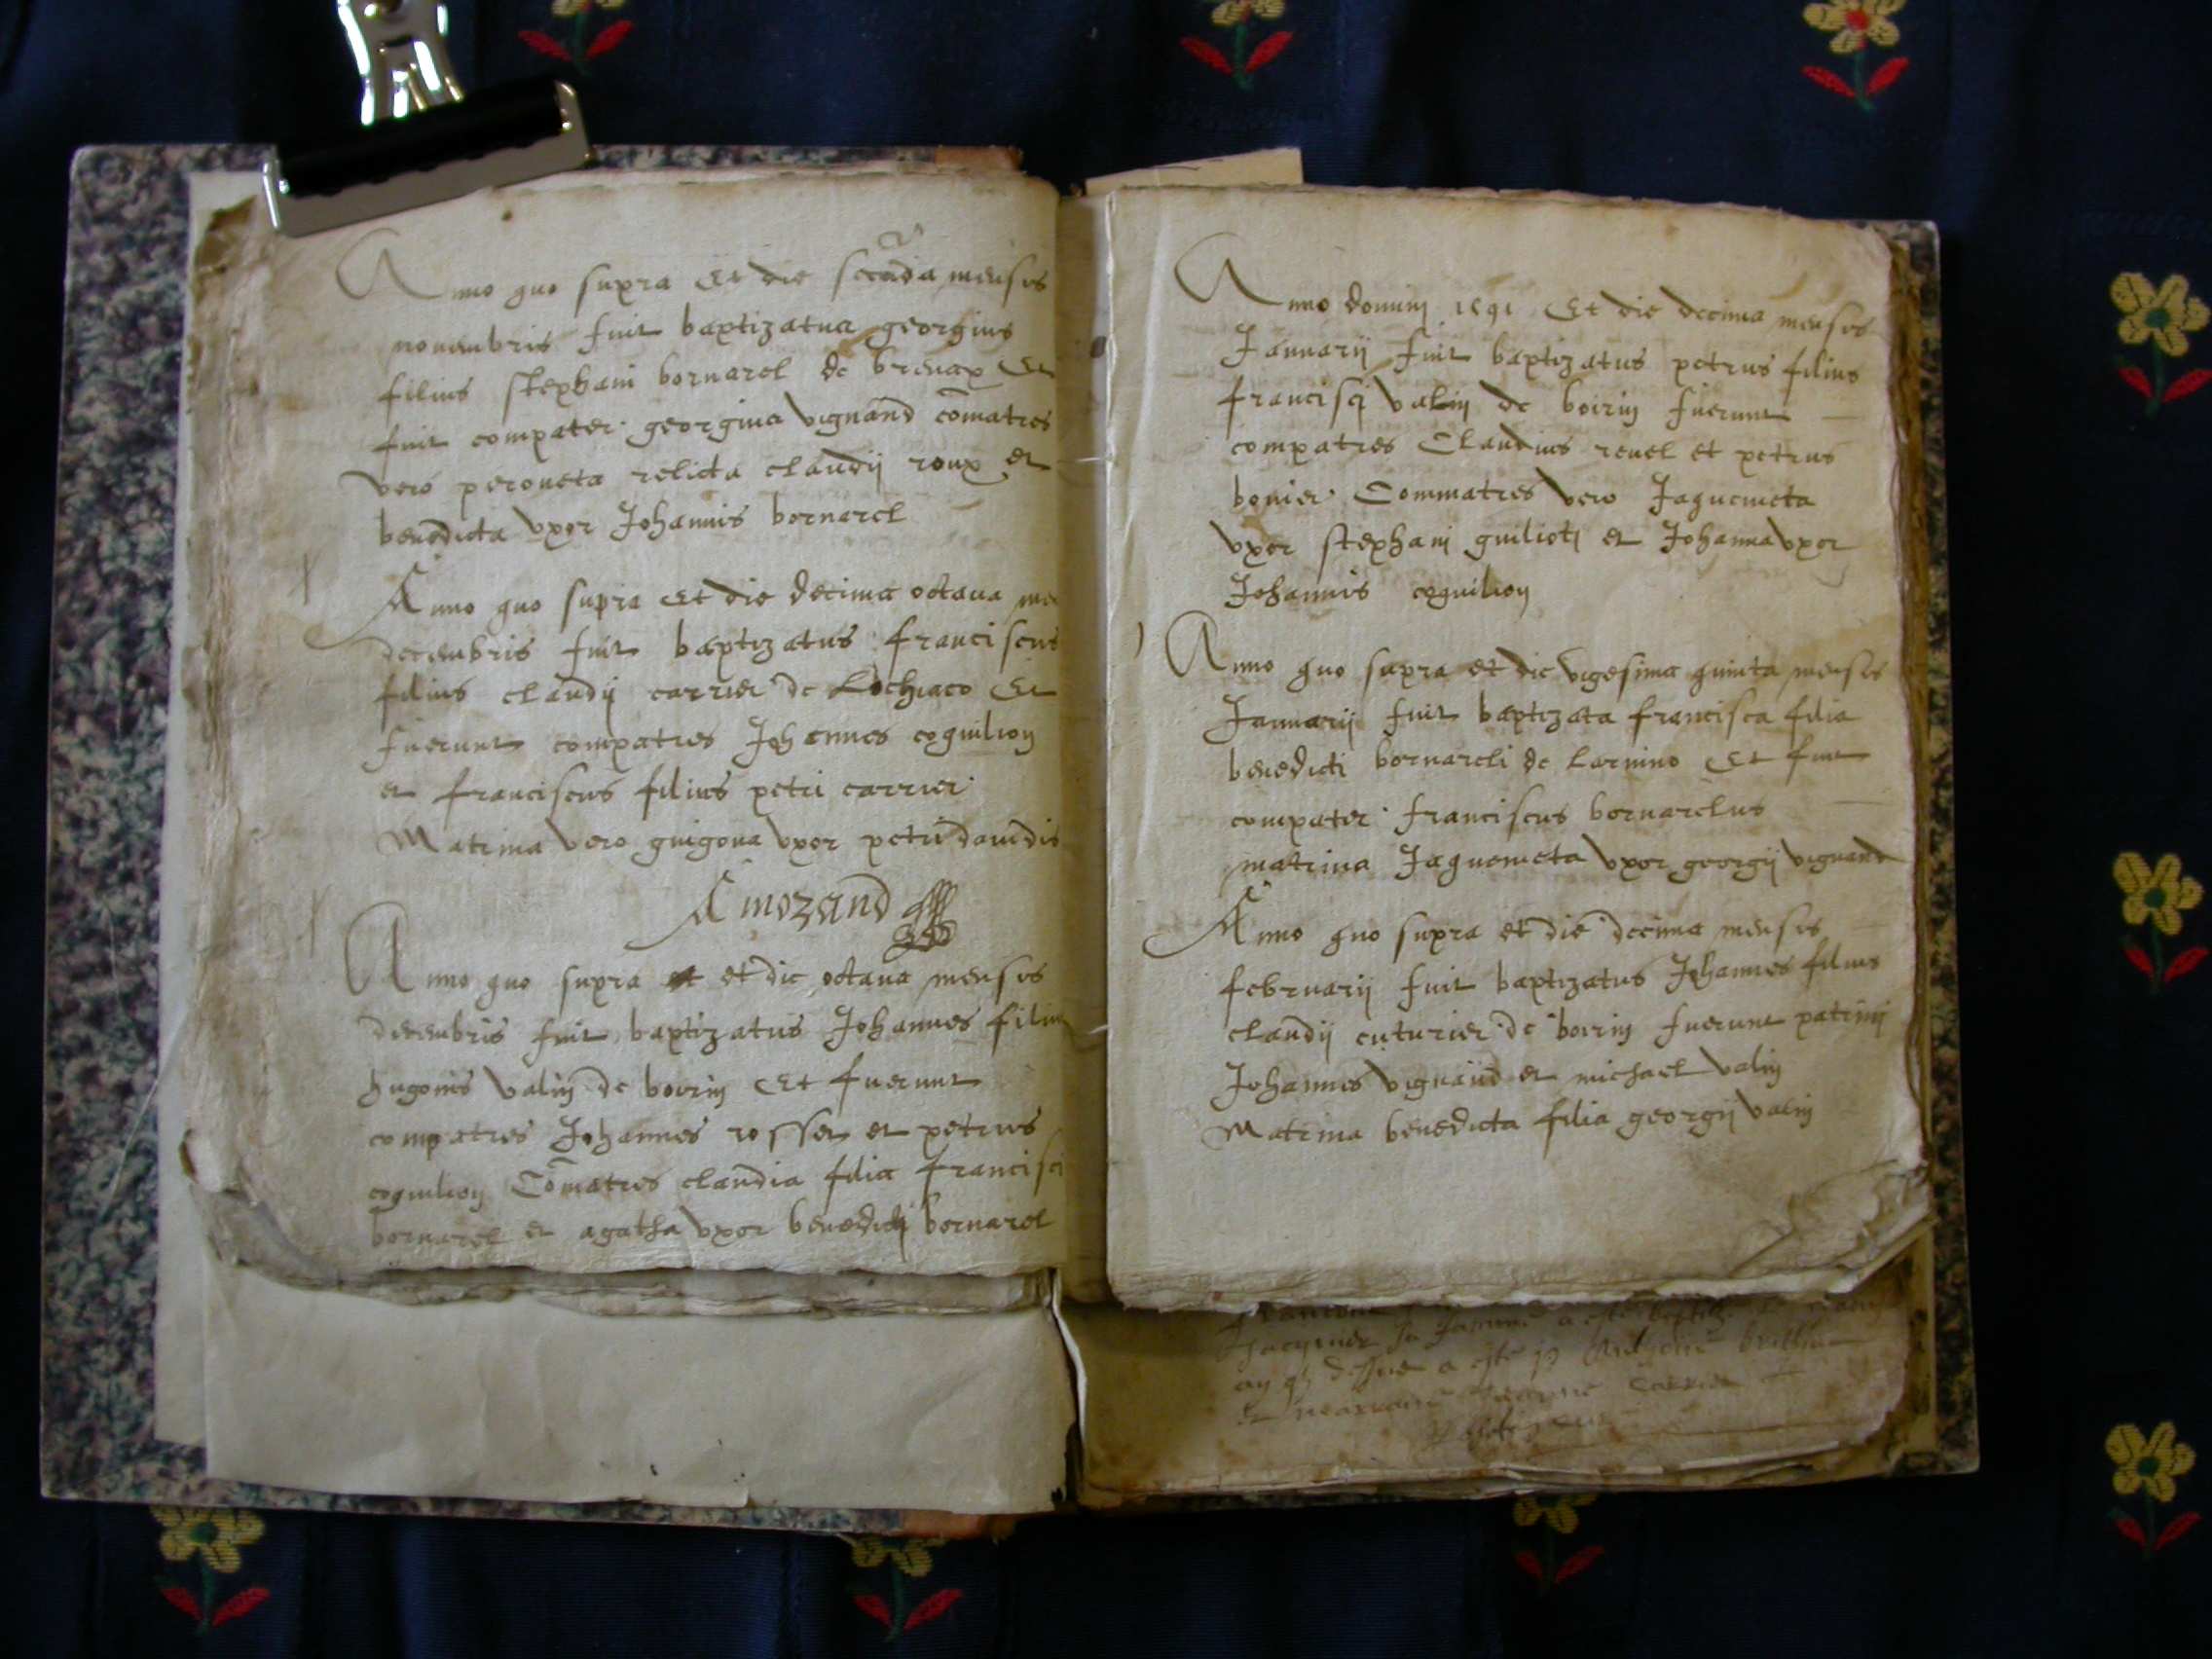 Anno quo supra Et die secūda mensis
novembris fuit baptizatus georgius
filius stephani bornarel de brevax Et
fuit compater georgius vignand cōmatres
vero peroneta relicta claudij roux et
benedicta vxor Johannis bornarel
Anno quo supra Et die decima octava
decembris fuit baptizatus franciscus
filius claudij carrier de Lochiaco Et
fuerunt compatres Johannes coquilion
et franciscus filius petri carrier
Matrina vero guigona vxor petri davidis
Amozand
Anno quo supra et die octava mensis
decembris fuit baptizatus Johannes filius
hugonis valin de boirin Et fuerunt
compatres Johannes rosset et petrus
coquilion Cōmatres claudia filia francisci
bornarel et agatha vxor benedicti bornarel
Anno domini 1591 Et die decima mensis
Januarij fuit baptizatus petrus filius
francisci valin de boirin fuerunt
compatres Claudius revel et petrus
bonier Commatres vero Jaquemeta
vxor stephani guilioti et Johanna vxor
Johannis coquilion
Anno quo supra et die vigesima quinta mensis
Januarij fuit baptizata francisca filia
benedicti bornareli de Larnino Et fuit
compater franciscus bornarelus
matrina Jaquemeta vxor georgij vignand
Anno quo supra et die decima mensis
februarij fuit baptizatus Johannes filius
claudij cuturier de boirin fuerunt patrini
Johannes vignand et michael valin
Matrina benedicta filia georgij valin